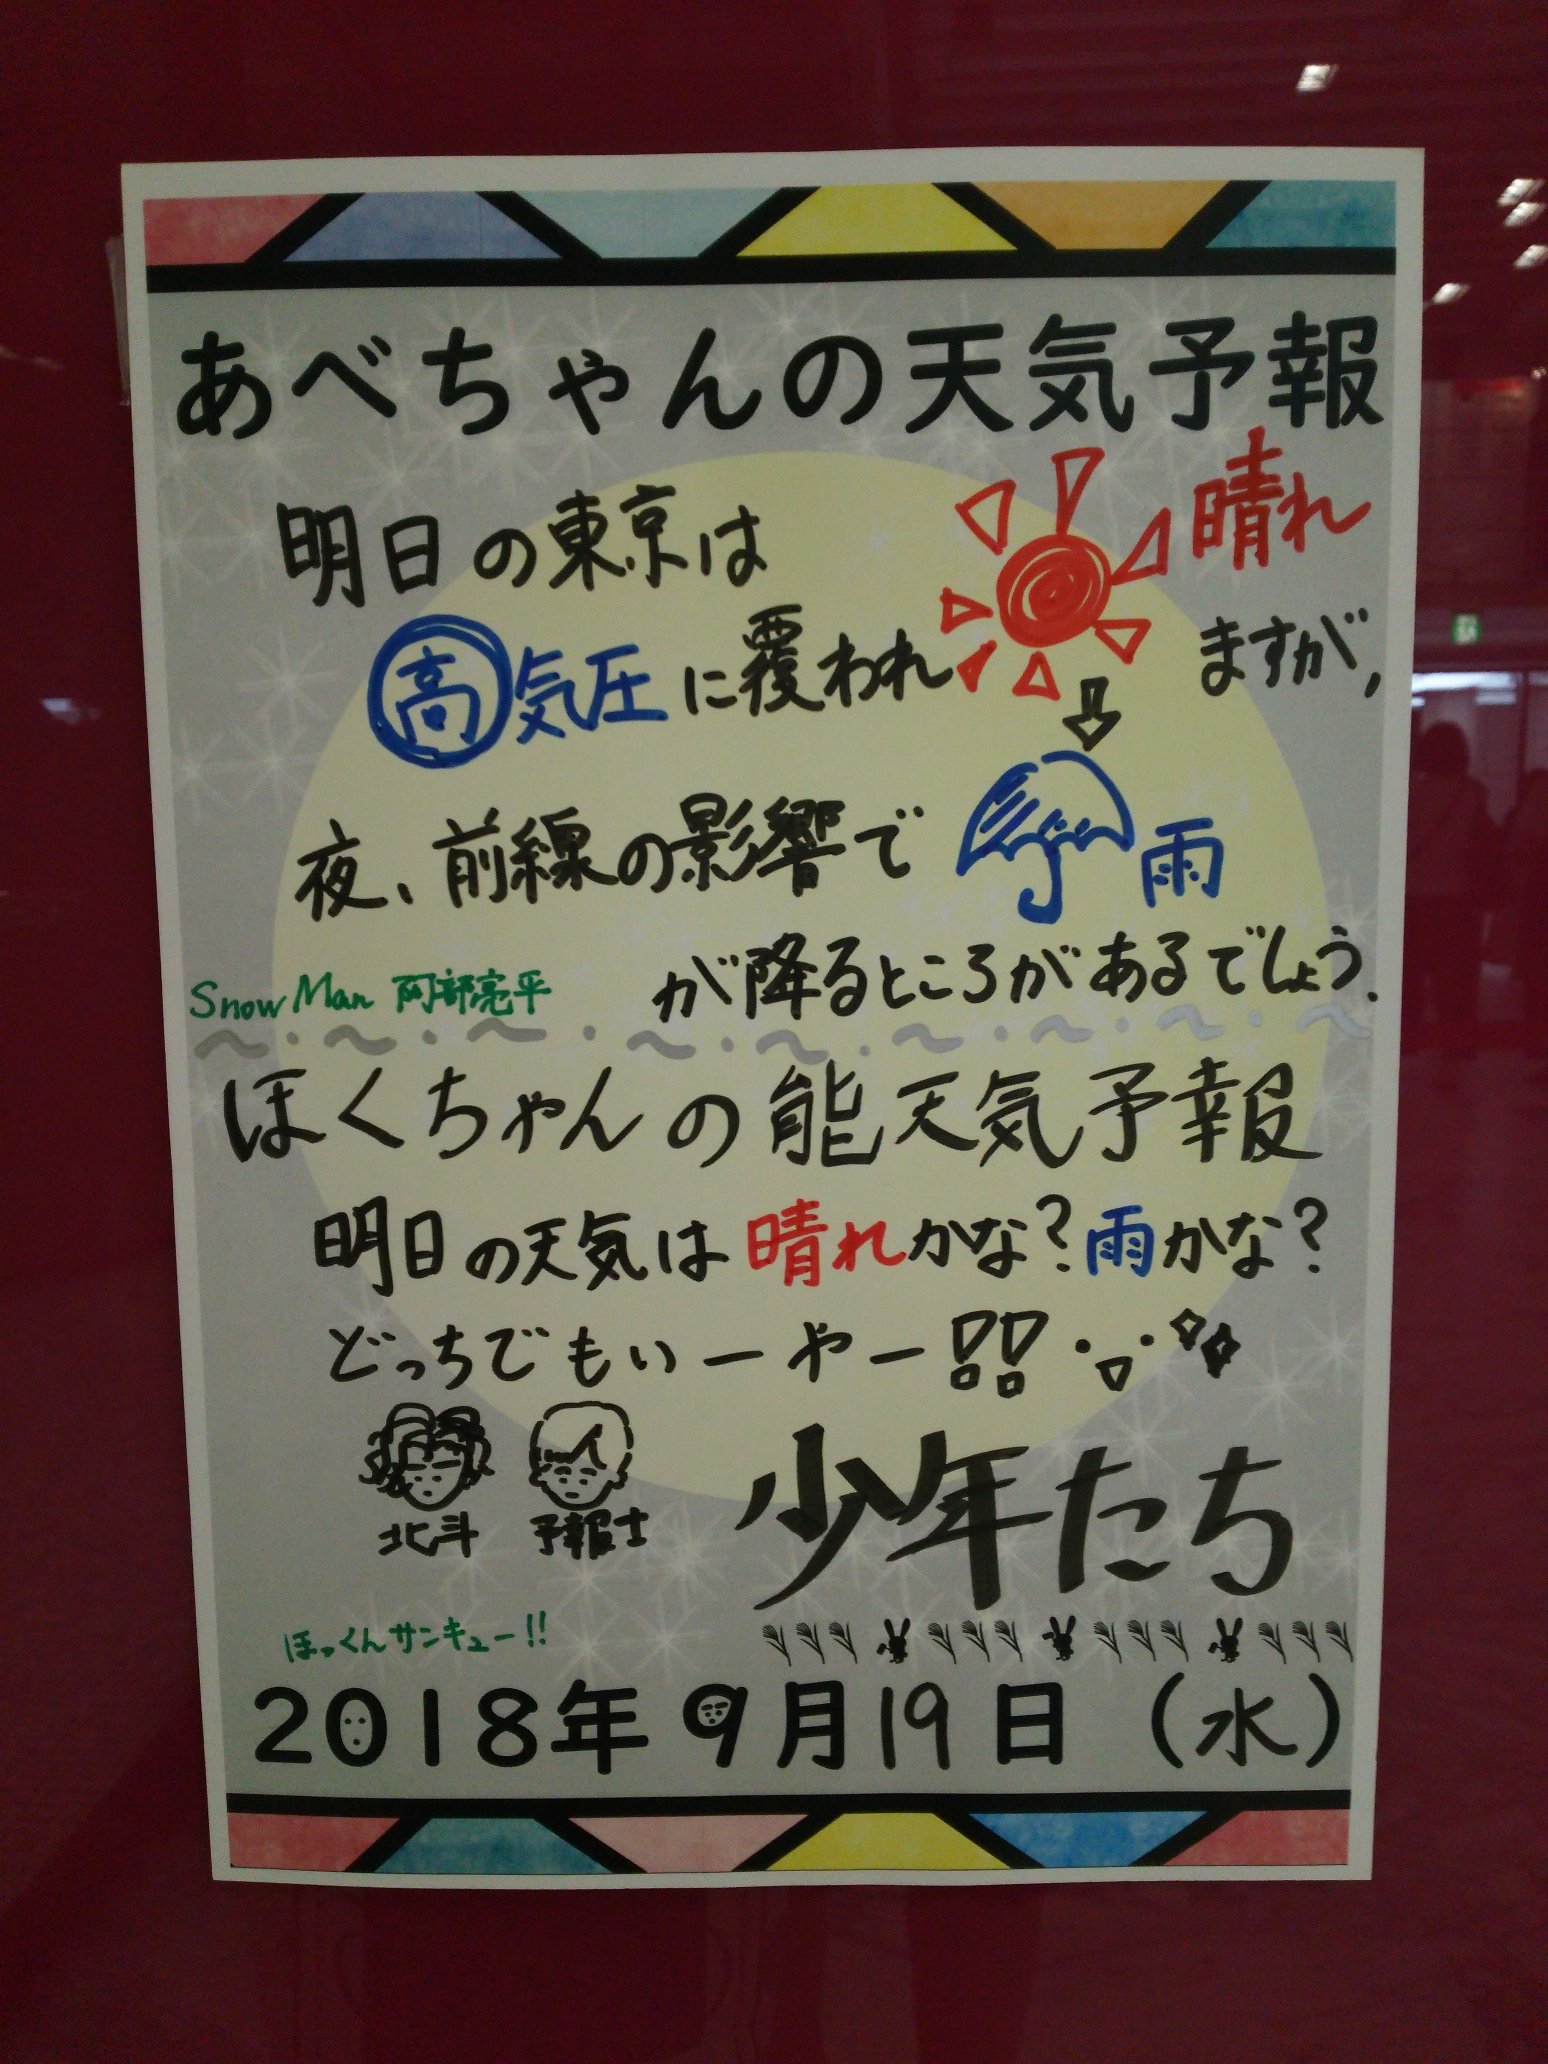 あべちゃんの天気予報
明日の東京は 晴れ
高気圧に覆われ ますが,
夜、前線の影響で 雨
が降るところがあるでしょう.
Snow Man 阿部亮平
〜・〜・〜・〜・〜・〜・〜・〜・〜
ほくちゃんの能天気予報
明日の天気は晴れかな?雨かな?
どっちでもいーやー!!
北斗 予報士
少年たち
ほっくんサンキュー!!
2018年9月19日(水)